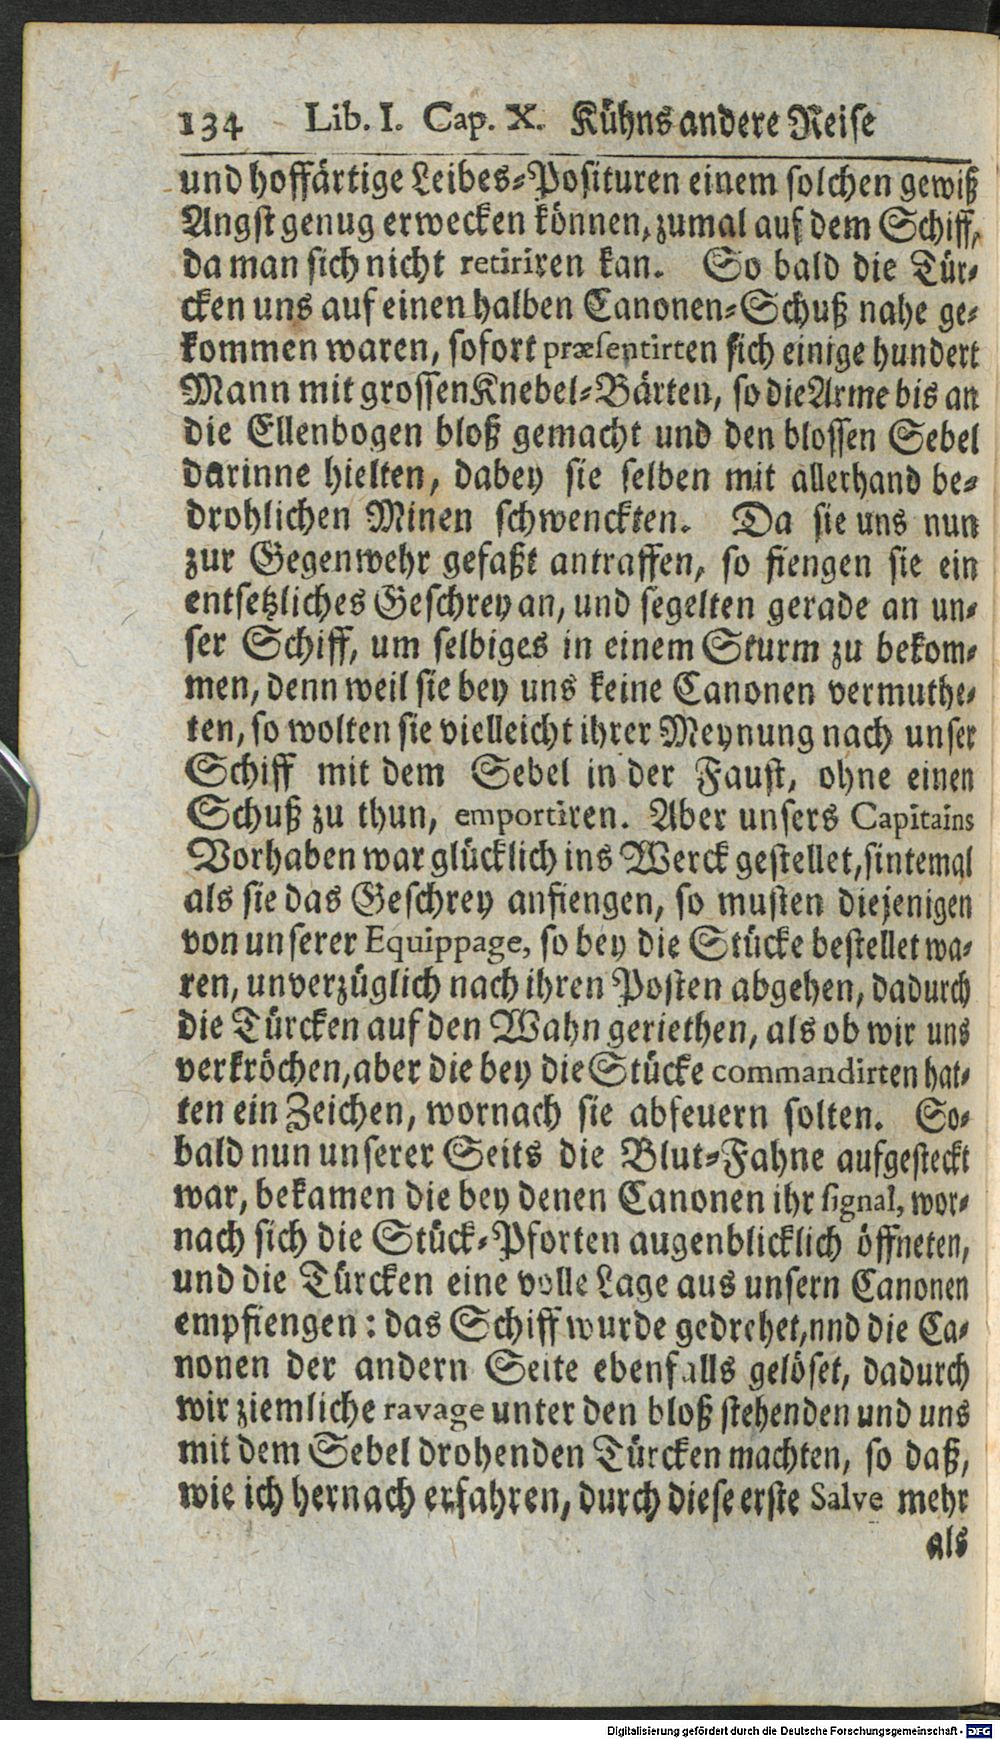 134 Lib. I. Cap. X. Kühns andere Reise
und hoffärtige Leibes-Posituren einem solchen gewiß
Angst genug erwecken können, zumal auf dem Schiff,
da man sich nicht retiriren kan. So bald die Tür-
cken uns auf einen halben Canonen-Schuß nahe ge-
kommen waren, sofort præsentirten sich einige hundert
Mann mit grossen Knebel-Bärten, so die Arme bis an
die Ellenbogen bloß gemacht und den blossen Sebel
darinne hielten, dabey sie selben mit allerhand be-
drohlichen Minen schwenckten. Da sie uns nun
zur Gegenwehr gefaßt antraffen, so fiengen sie ein
entsetzliches Geschrey an, und segelten gerade an un-
ser Schiff, um selbiges in einem Sturm zu bekom-
men, denn weil sie bey uns keine Canonen vermuthe-
ten, so wolten sie vielleicht ihrer Meynung nach unser
Schiff mit dem Sebel in der Faust, ohne einen
Schuß zu thun, emportiren. Aber unsers Capitains
Vorhaben war glücklich ins Werck gestellet, sintemal
als sie das Geschrey anfiengen, so musten diejenigen
von unserer Equippage, so bey die Stücke bestellet wa-
ren, unverzüglich nach ihren Posten abgehen, dadurch
die Türcken auf den Wahn geriethen, als ob wir uns
verkröchen, aber die bey die Stücke commandirten hat-
ten ein Zeichen, wornach sie abfeuern solten. So-
bald nun unserer Seits die Blut-Fahne aufgesteckt
war, bekamen die bey denen Canonen ihr signal, wor-
nach sich die Stück-Pforten augenblicklich öffneten,
und die Türcken eine volle Lage aus unsern Canonen
empfiengen: das Schiff wurde gedrehet, nnd die Ca-
nonen der andern Seite ebenfalls gelöset, dadurch
wir ziemliche ravage unter den bloß stehenden und uns
mit dem Sebel drohenden Türcken machten, so daß,
wie ich hernach erfahren, durch diese erste Salve mehr
als
Digitalisierung gefördert durch die Deutsche Forschungsgemeinschaft - DFG